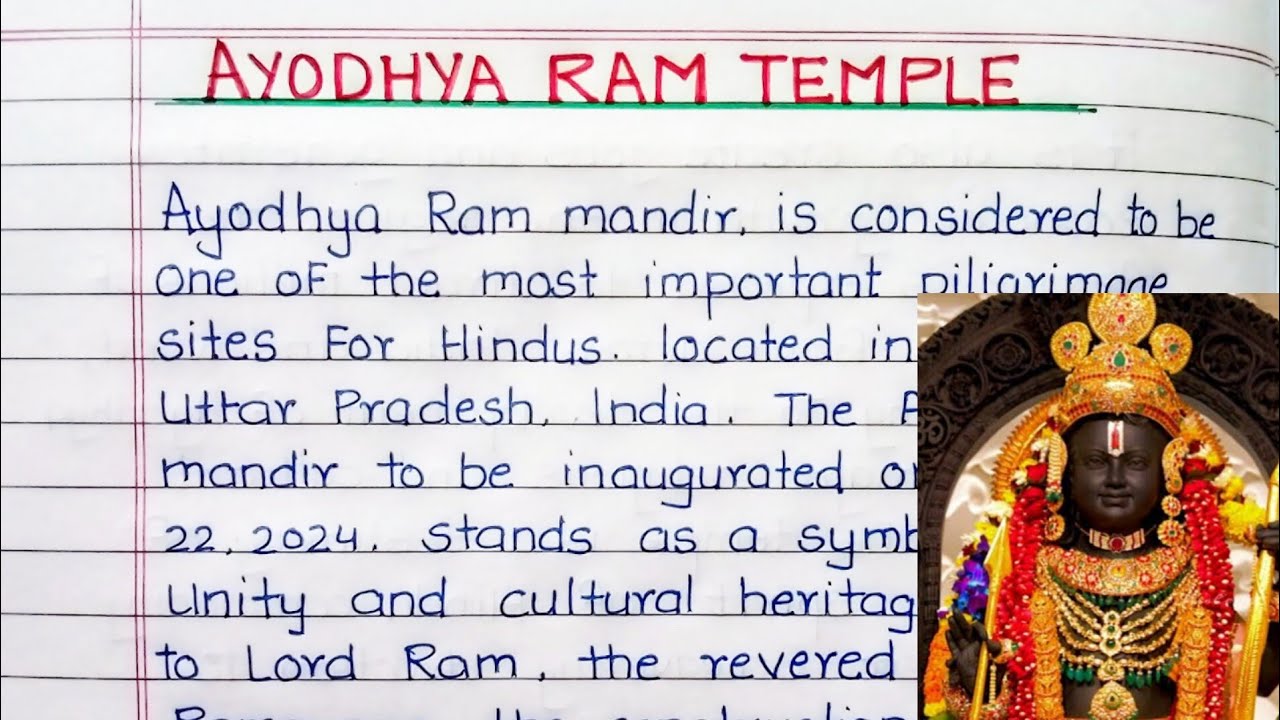 AYODHYA RAM TEMPLE
Ayodhya Ram mandir, is considered to be
one of the most important piligrimage
sites For Hindus. located in
Uttar Pradesh, India. The
mandir to be inaugurated
22, 2024. stands as a
Unity and cultural
to Lord Ram, the revered